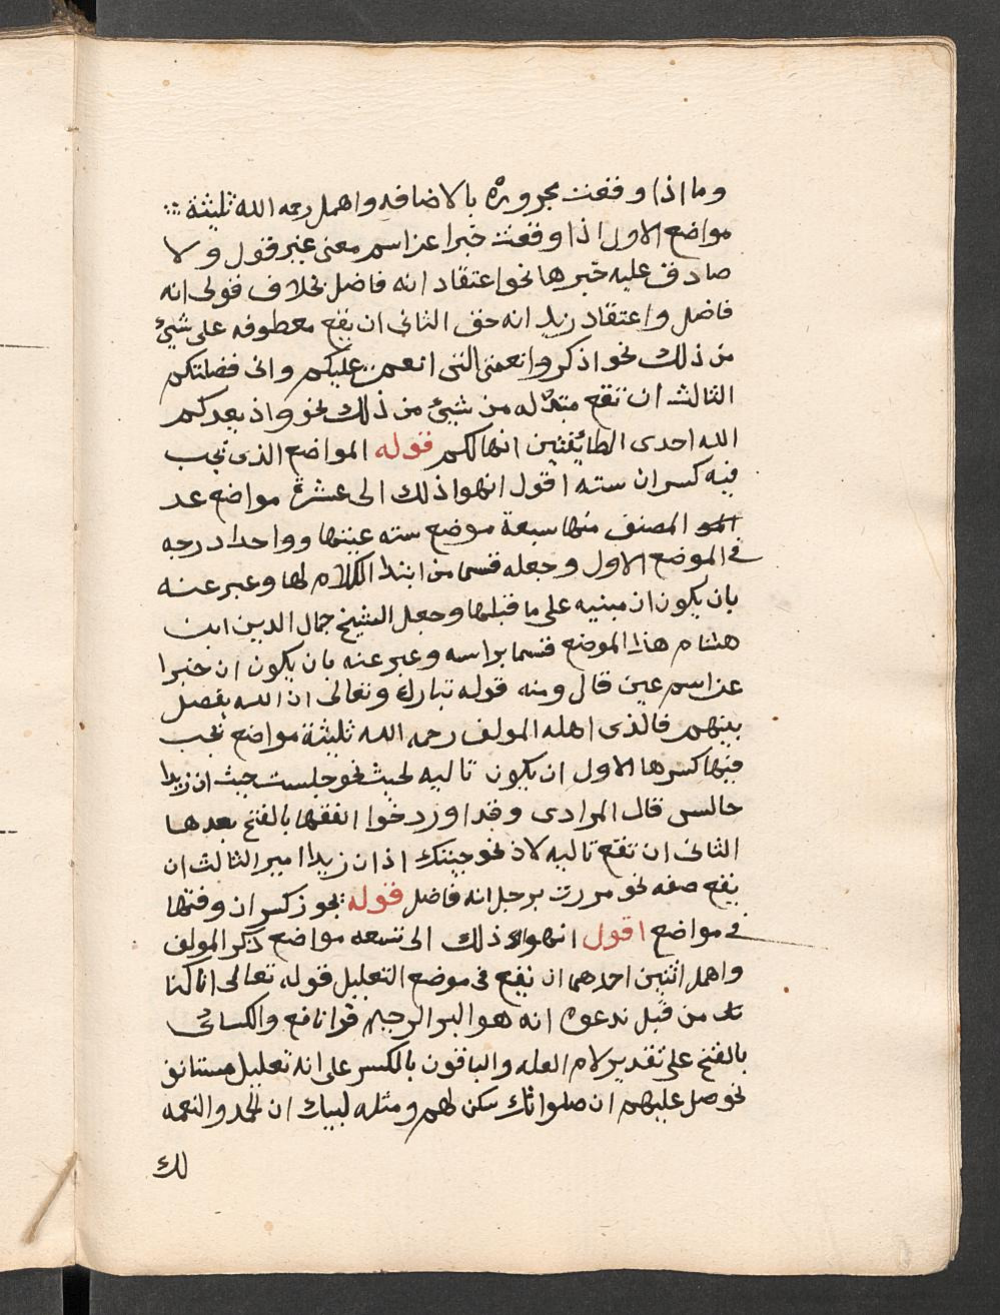 وما اذا وقعت مجرورة بالاضافه واهمل رحمه الله ثليثة
مواضع الاول اذا وقعت خبرا عن اسم معنى غير قول ولا
صادق عليه خبرها نحو اعتقاد انه فاضل بخلاف قولى انه
فاضل واعتقاد زيد انه حق الثانى ان يقع معطوفه على شيئ
من ذلك نحو اذكروا نعمتى التى انعمت عليكم وانى فضلتكم
الثالث ان تقع مبدله من شيئ من ذلك نحو واذ يعدكم
الله احدى الطايفتين انها لكم قوله المواضع الذى تجب
فيه كسر ان سته اقول انهوا ذلك الى عشرة مواضع عد
المصنف منها سبعة موضع سته عينها وواحدا درجه
فى الموضع الاول وجعله قسما من ابتدا الكلام لها وعبر عنه
بان يكون ان مبنيه على ما قبلها وجعل الشيخ جمال الدين ابن
هشام هذا الموضع قسما براسه وعبر عنه بان يكون ان خبرا
عن اسم عين قال ومنه قوله تبارك وتعالى ان الله يفصل
بينهم فالذى اهله المولف رحمه الله ثليثة مواضع تجب
فيها كسرها الاول ان يكون تاليه لحيث نحو جلست حيث ان زيدا
جالس قال المرادى وقد اورد خوا الفقها بالفتح بعدها
الثانى ان تقع تاليه لاذ نحو جيتك اذ ان زيدا امير الثالث ان
يقع صفه نحو مررت برجل انه فاضل قوله يجوز كسر ان وفتحها
فى مواضع اقول انهوا ذلك الى تسعه مواضع ذكر المولف
واهمل اثنين احدهما ان يقع فى موضع التعليل قوله تعالى انا كنا
من قبل ندعوه انه هو البر الرحيم قرا نافع والكسائى
بالفتح على تقدير لام العله والباقون بالكسر على انه تعليل مستانف
نحو صل عليهم ان صلواتك سكن لهم ومثله لبيك ان الحمد والنعمه
لك